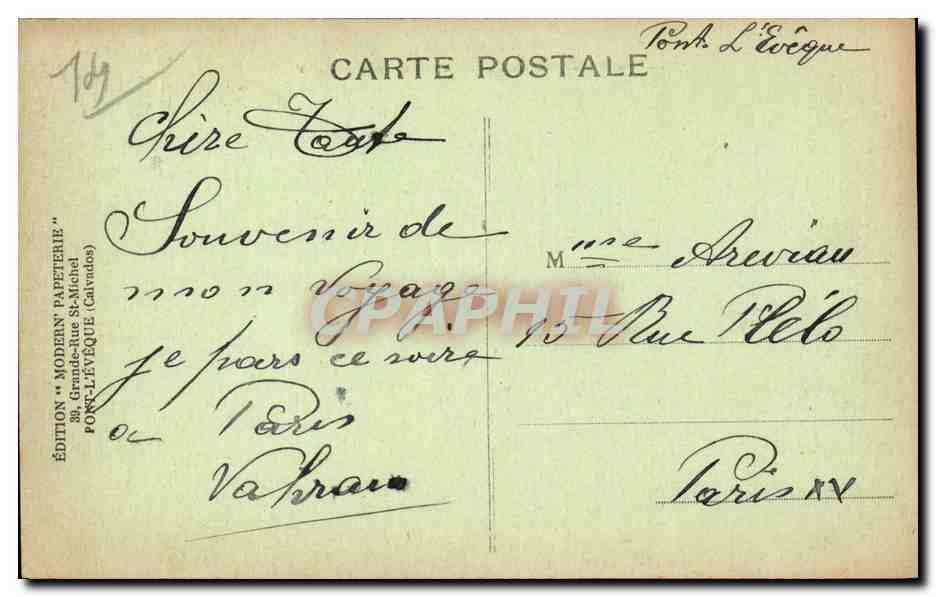 Pont L'Evêque
CARTE POSTALE
Chère Tante
Souvenir de
mon voyage
je pars ce soire
a Paris
Vahram
Mme Arevian
15 Rue Plélo
Paris XV
ÉDITION "MODERN' PAPETERIE"
39, Grande-Rue St-Michel
PONT-L'ÉVÊQUE (Calvados)
CPAPHIL